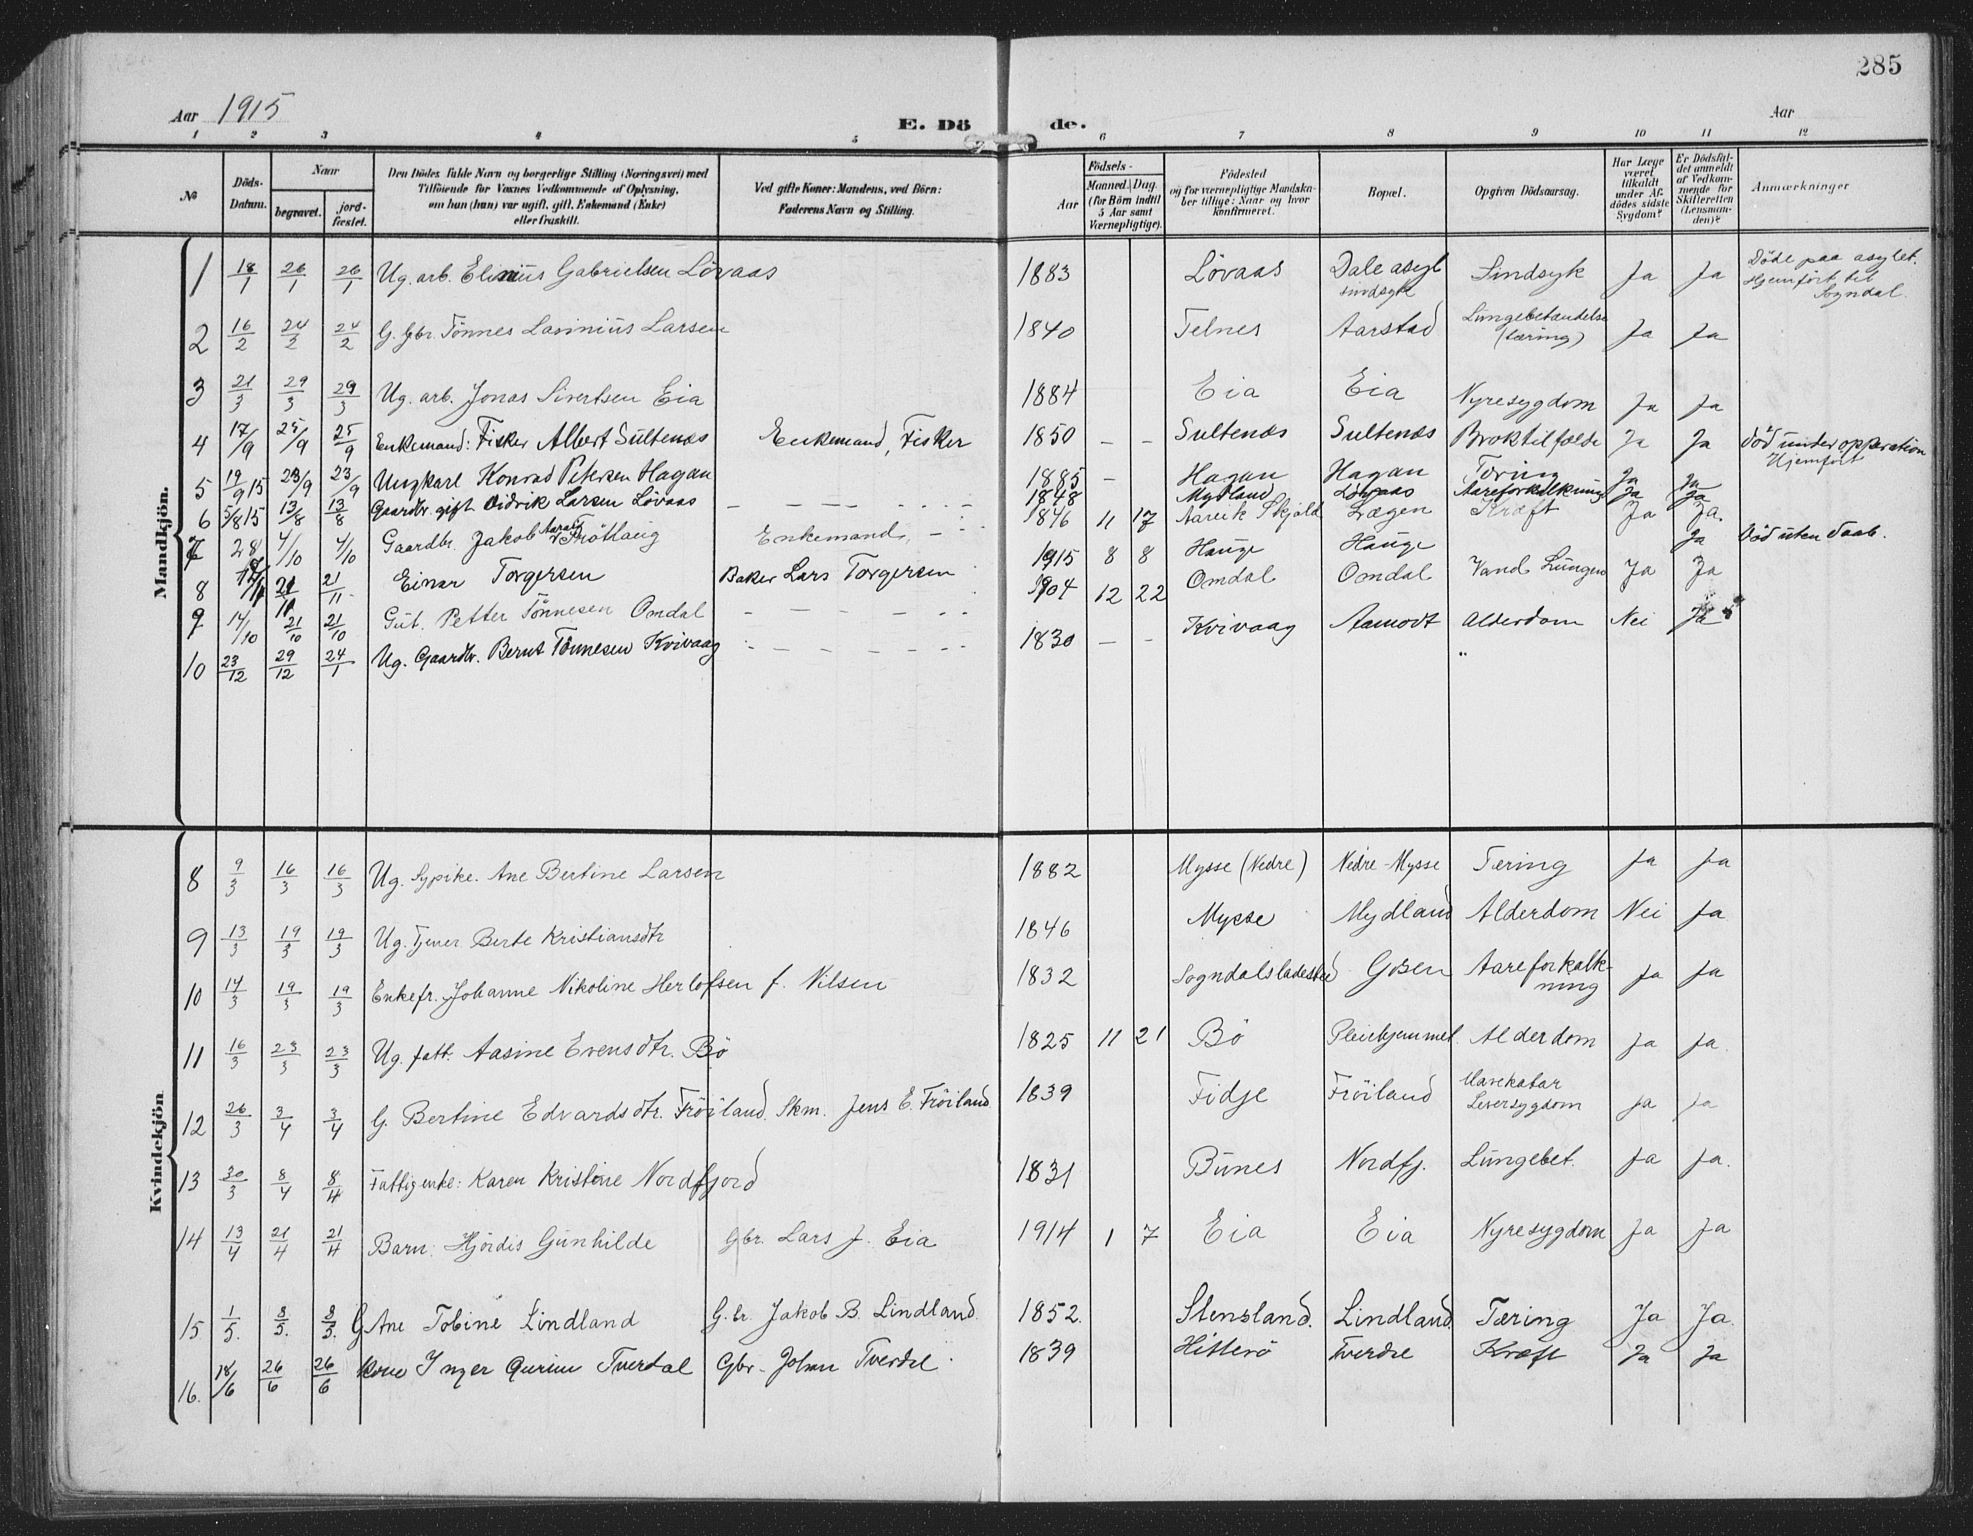 285
Aar 1915
E. Dö de.
Aar
1 2 3 4 5 6 7 8 9 10 11 12
№
Döds-Datum.
Naar
begravet.
jord-fæstet.
Den Dödes fulde Navn og borgerlige Stilling (Næringsvei) med
Tilföiende for Voxnes Vedkommende af Oplysning,
om han (hun) var ugift, gift, Enkemand (Enke)
eller fraskilt.
Ved gifte Koner: Mandens, ved Börn:
Faderens Navn og Stilling.
Födsels-
Aar
Maaned. Dag.
(for Börn indtil
5 Aar samt
Værnepligtige).
Födested
og for værnepligtige Mandska-
ber tillige: Naar og hvor
konfirmeret.
Bopæl.
Opgiven Dödsaarsag.
Har Læge
været
tilkaldt
under Af-
dödes sidste
Sygdom?
Er Dödsfal-
det anmeldt
af Vedkom-
mende for
Skifteretten
(Lensman-
den)?
Anmærkninger
Mandkjön.
1 18/1 26/1 26/1 Ug. arb. Elinius Gabrielsen Lövaas 1883 Lövaas Dale asyl sindsyk Sindsyk Ja Ja Döde paa asylet. Hjemfört til Sogndal.
2 16/2 24/2 24/2 G. Gbr. Tönnes Lavinius Larsen 1840 Telnes Aarstad Lungebetændelse (tæring) Ja Ja
3 21/3 29/3 29/3 Ug. arb. Jonas Sivertsen Eia 1884 – – Eia Eia Nyresygdom Ja Ja
4 17/9 25/9 25/9 Enkemand: Fisker Albert Sultenes Enkemand, Fisker 1850 – – Sultenæs Sultenæs Broktilfælde Ja Ja Död under opperation Hjemfört
5 19/9 15 23/9 23/9 Ungkarl Konrad Petersen Hagan 1885 – Hagan Hagan Tæring Ja Ja
6 5/8 15 13/8 13/8 Gaardbr. gift Didrik Larsen Lövaas 1848 Mydland Lövaas Aareforkalkning Ja Ja
7 28 4/10 4/10 Gaardbr. Jakob Fröitlaug Enkemand 1846 11 17 Aarvik Skjold Lægen Kræft Ja Ja.
8 21/11 21/11 Einar Torgersen Baker Lars Torgersen 1915 8 8 Hauge Hauge Ja Död uten daab.
9 14/10 21/10 21/10 Gut. Petter Tönnesen Omdal 1904 12 22 Omdal Omdal Vand Lungen Ja Ja
10 23/12 29/12 24/1 Ug. Gaardbr. Bernt Tönnesen Kvivaag 1830 – – Kvivaag Aamodt Alderdom Nei Ja
Kvindekjön.
8 9/3 16/3 16/3 Ug. Sypike. Ane Bertine Larsen 1882 Mysse (Nedre) Nedre-Mysse Tæring Ja Ja
9 13/3 19/3 19/3 Ug. Tjener Berte Kristiansdtr 1846 Mysse Mydland Alderdom Nei Ja
10 14/3 19/3 19/3 Enkefr. Johanne Nikoline Herlofsen f. Nilsen 1832 Sogndalsladested Gösen Aareforkalk-ning Ja Ja
11 16/3 23/3 23/3 Ug. fatt. Aasine Evensdtr. Bö 1825 11 21 Bö Pleiehjemmet. Alderdom Ja Ja.
12 26/3 3/4 3/4 G. Bertine Edvardsdtr. Fröiland. Skm. Jens E. Fröiland 1839 Fidje Fröiland Mavekatar Leversygdom Ja Ja
13 30/3 8/4 8/4 Fattigenke: Karen Kristine Nordfjord 1831 Bunes Nordfj. Lungebet. Ja Ja.
14 13/4 21/4 21/4 Barn: Hjördis Gunhilde Gbr. Lars J. Eia 1914 1 7 Eia Eia Nyresygdom Ja Ja
15 1/5. 8/5. 8/5. G Ane Tobine Lindland G.br. Jakob B. Lindland 1852. Stensland. Lindland. Tæring Ja Ja.
16. 18/6 26/6 26/6 Kone Inger Tverdal Gbr. Johan Tverdal 1839 Hitterö Kræft Ja Ja